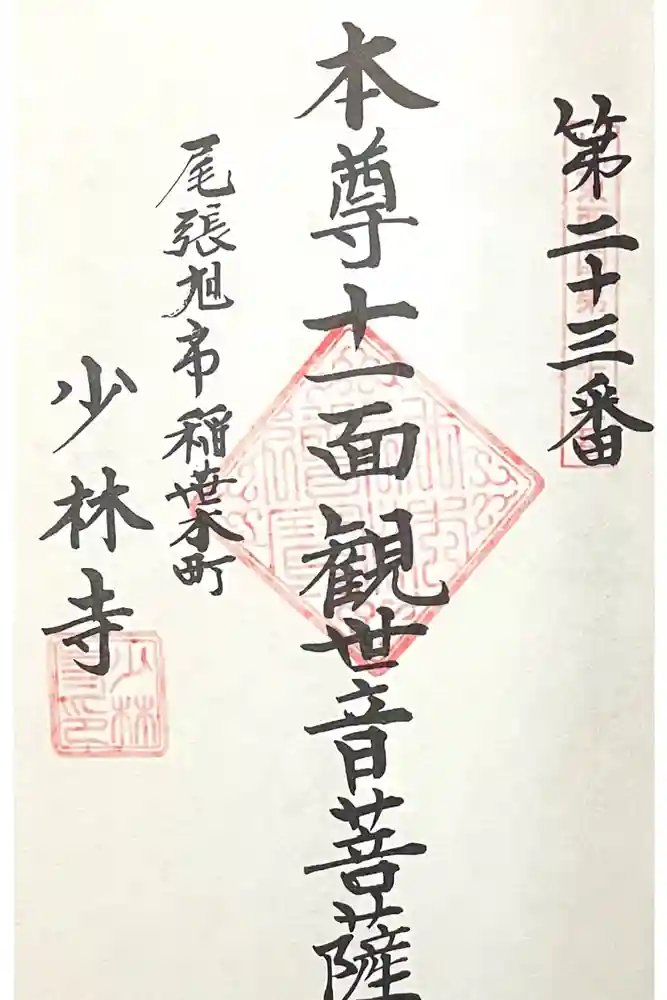 第二十三番
本尊十一面観世音菩薩
尾張旭市稲葉町
少林寺
少林